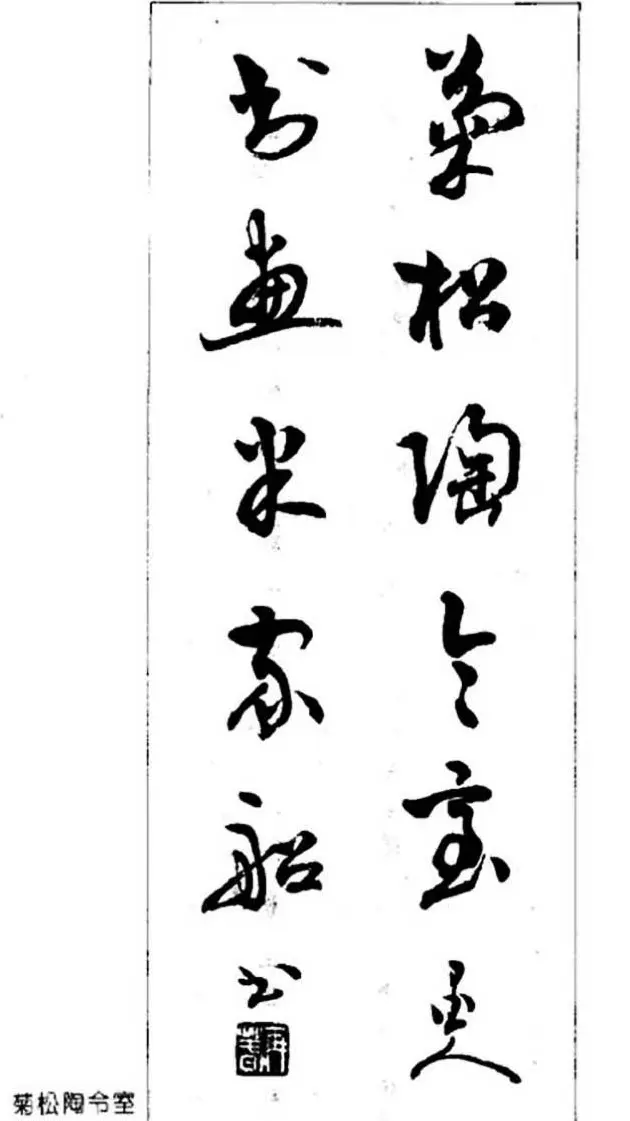 菊松陶令室墨人
书画米家船书
菊松陶令室